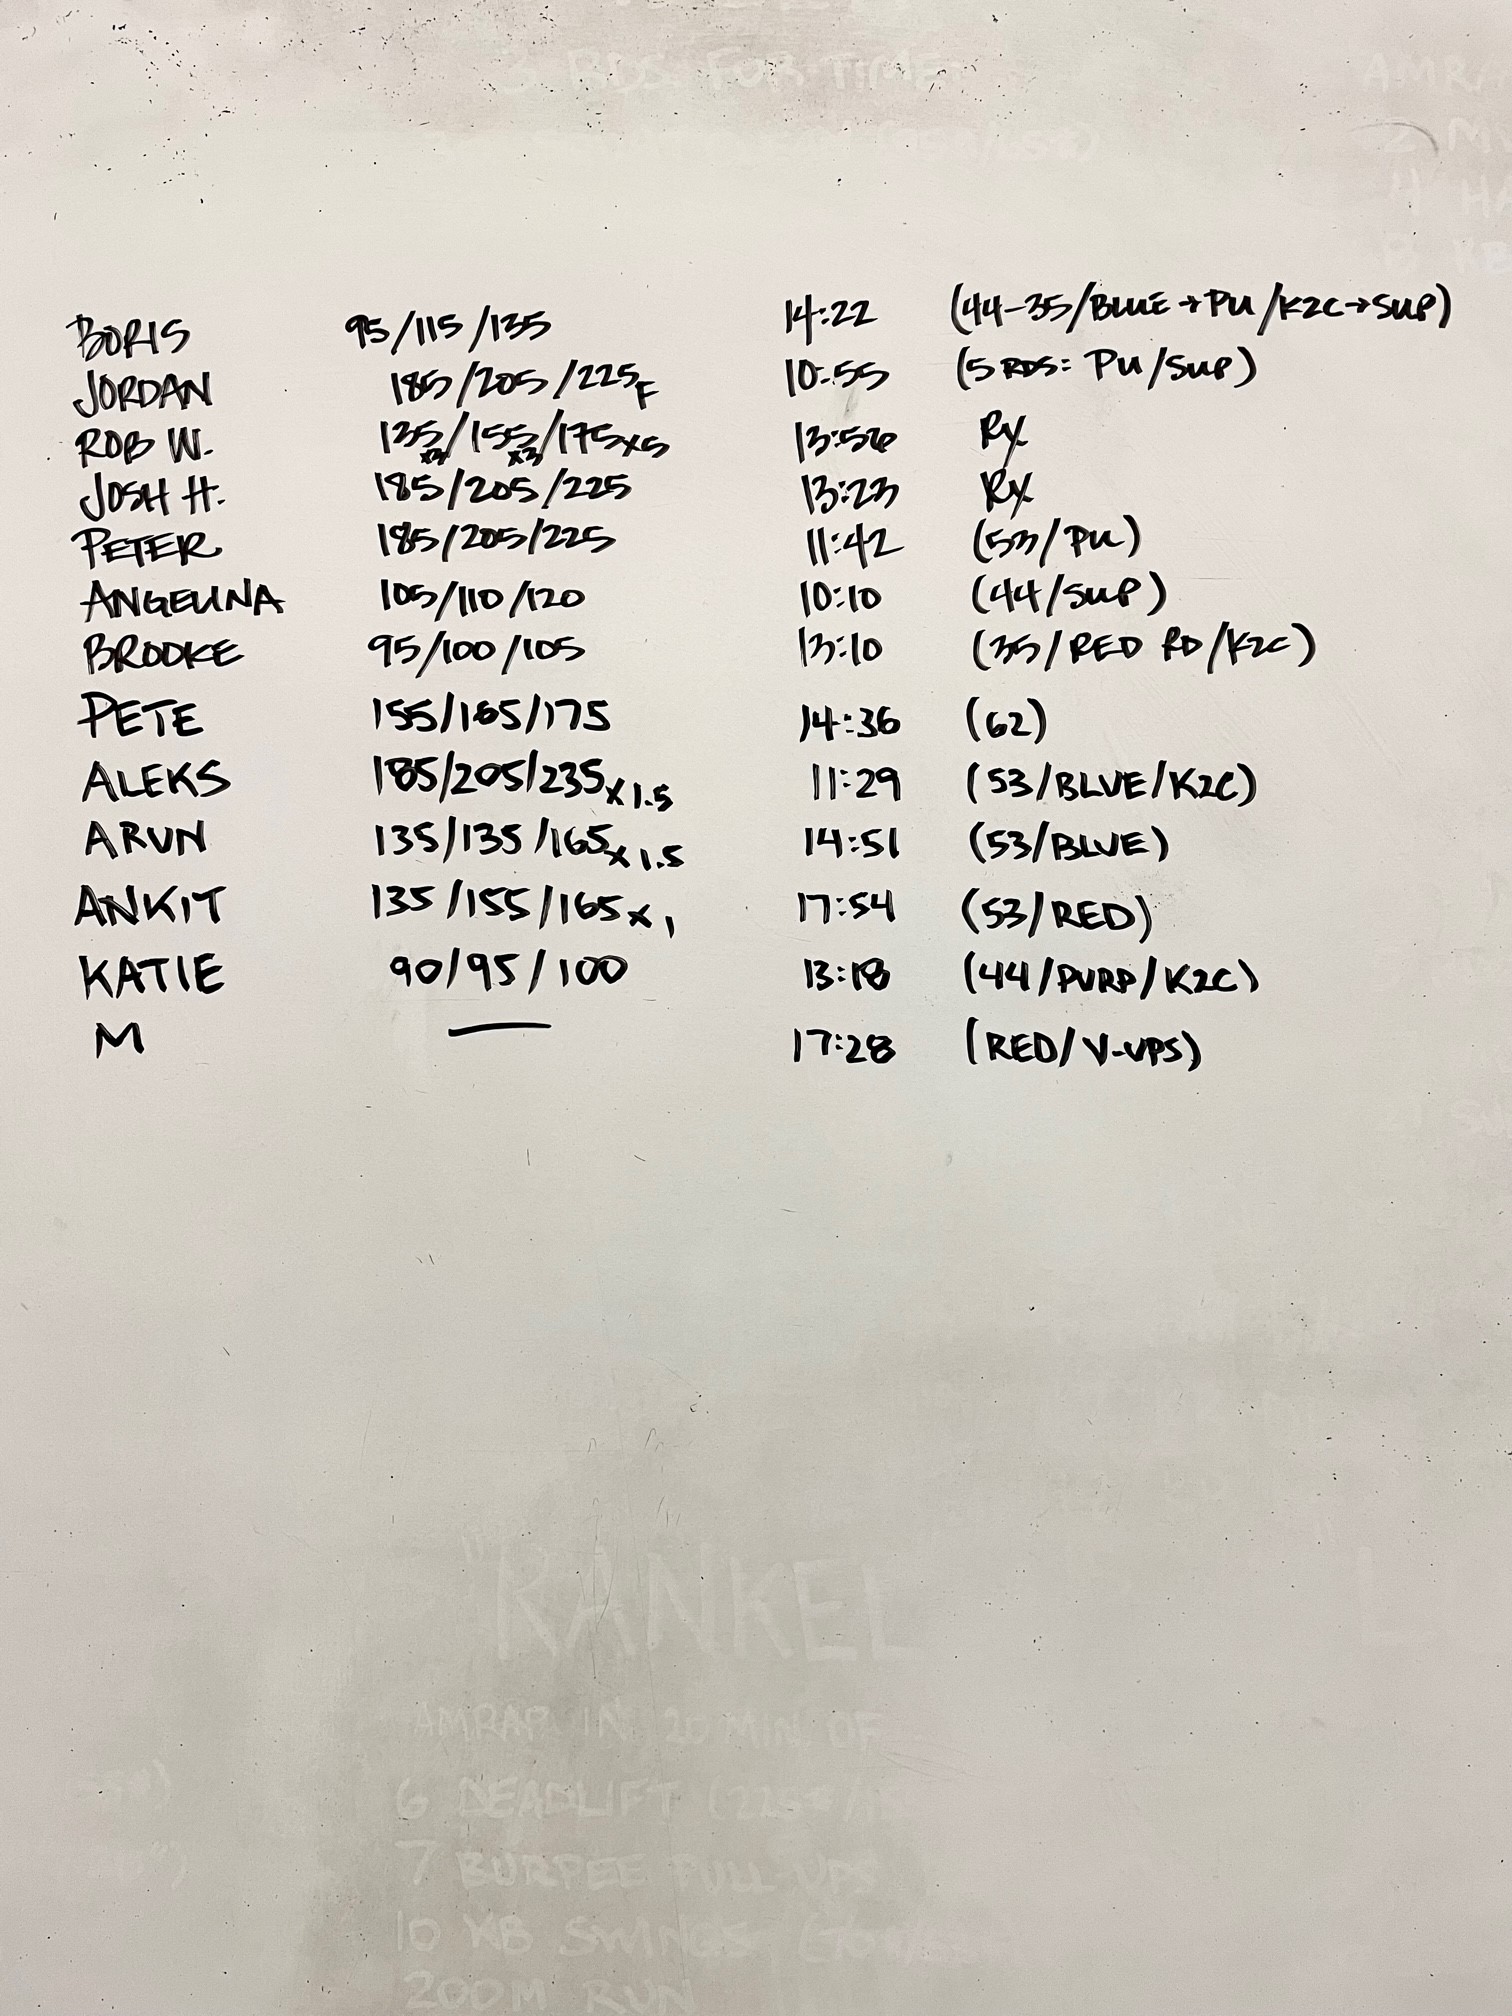 3 RDS FOR TIME
BORIS 95/115/135 14:22 (44-35/BLUE→PU/K2C→SUP)
JORDAN 185/205/225F 10:55 (5 RDS: PU/SUP)
ROB W. 135x3/155x3/175x5 13:56 Rx
JOSH H. 185/205/225 13:23 Rx
PETER 185/205/225 11:42 (53/PU)
ANGELINA 105/110/120 10:10 (44/SUP)
BROOKE 95/100/105 13:10 (35/RED RD/K2C)
PETE 155/165/175 14:36 (62)
ALEKS 185/205/235x1.5 11:29 (53/BLUE/K2C)
ARUN 135/135/165x1.5 14:51 (53/BLUE)
ANKIT 135/155/165x1 17:54 (53/RED)
KATIE 90/95/100 13:18 (44/PURP/K2C)
M — 17:28 (RED/V-UPS)
"RANKEL
AMRAP IN 20 MIN OF
6 DEADLIFT (225#/
7 BURPEE PULL-UPS
10 KB SWINGS
200M RUN